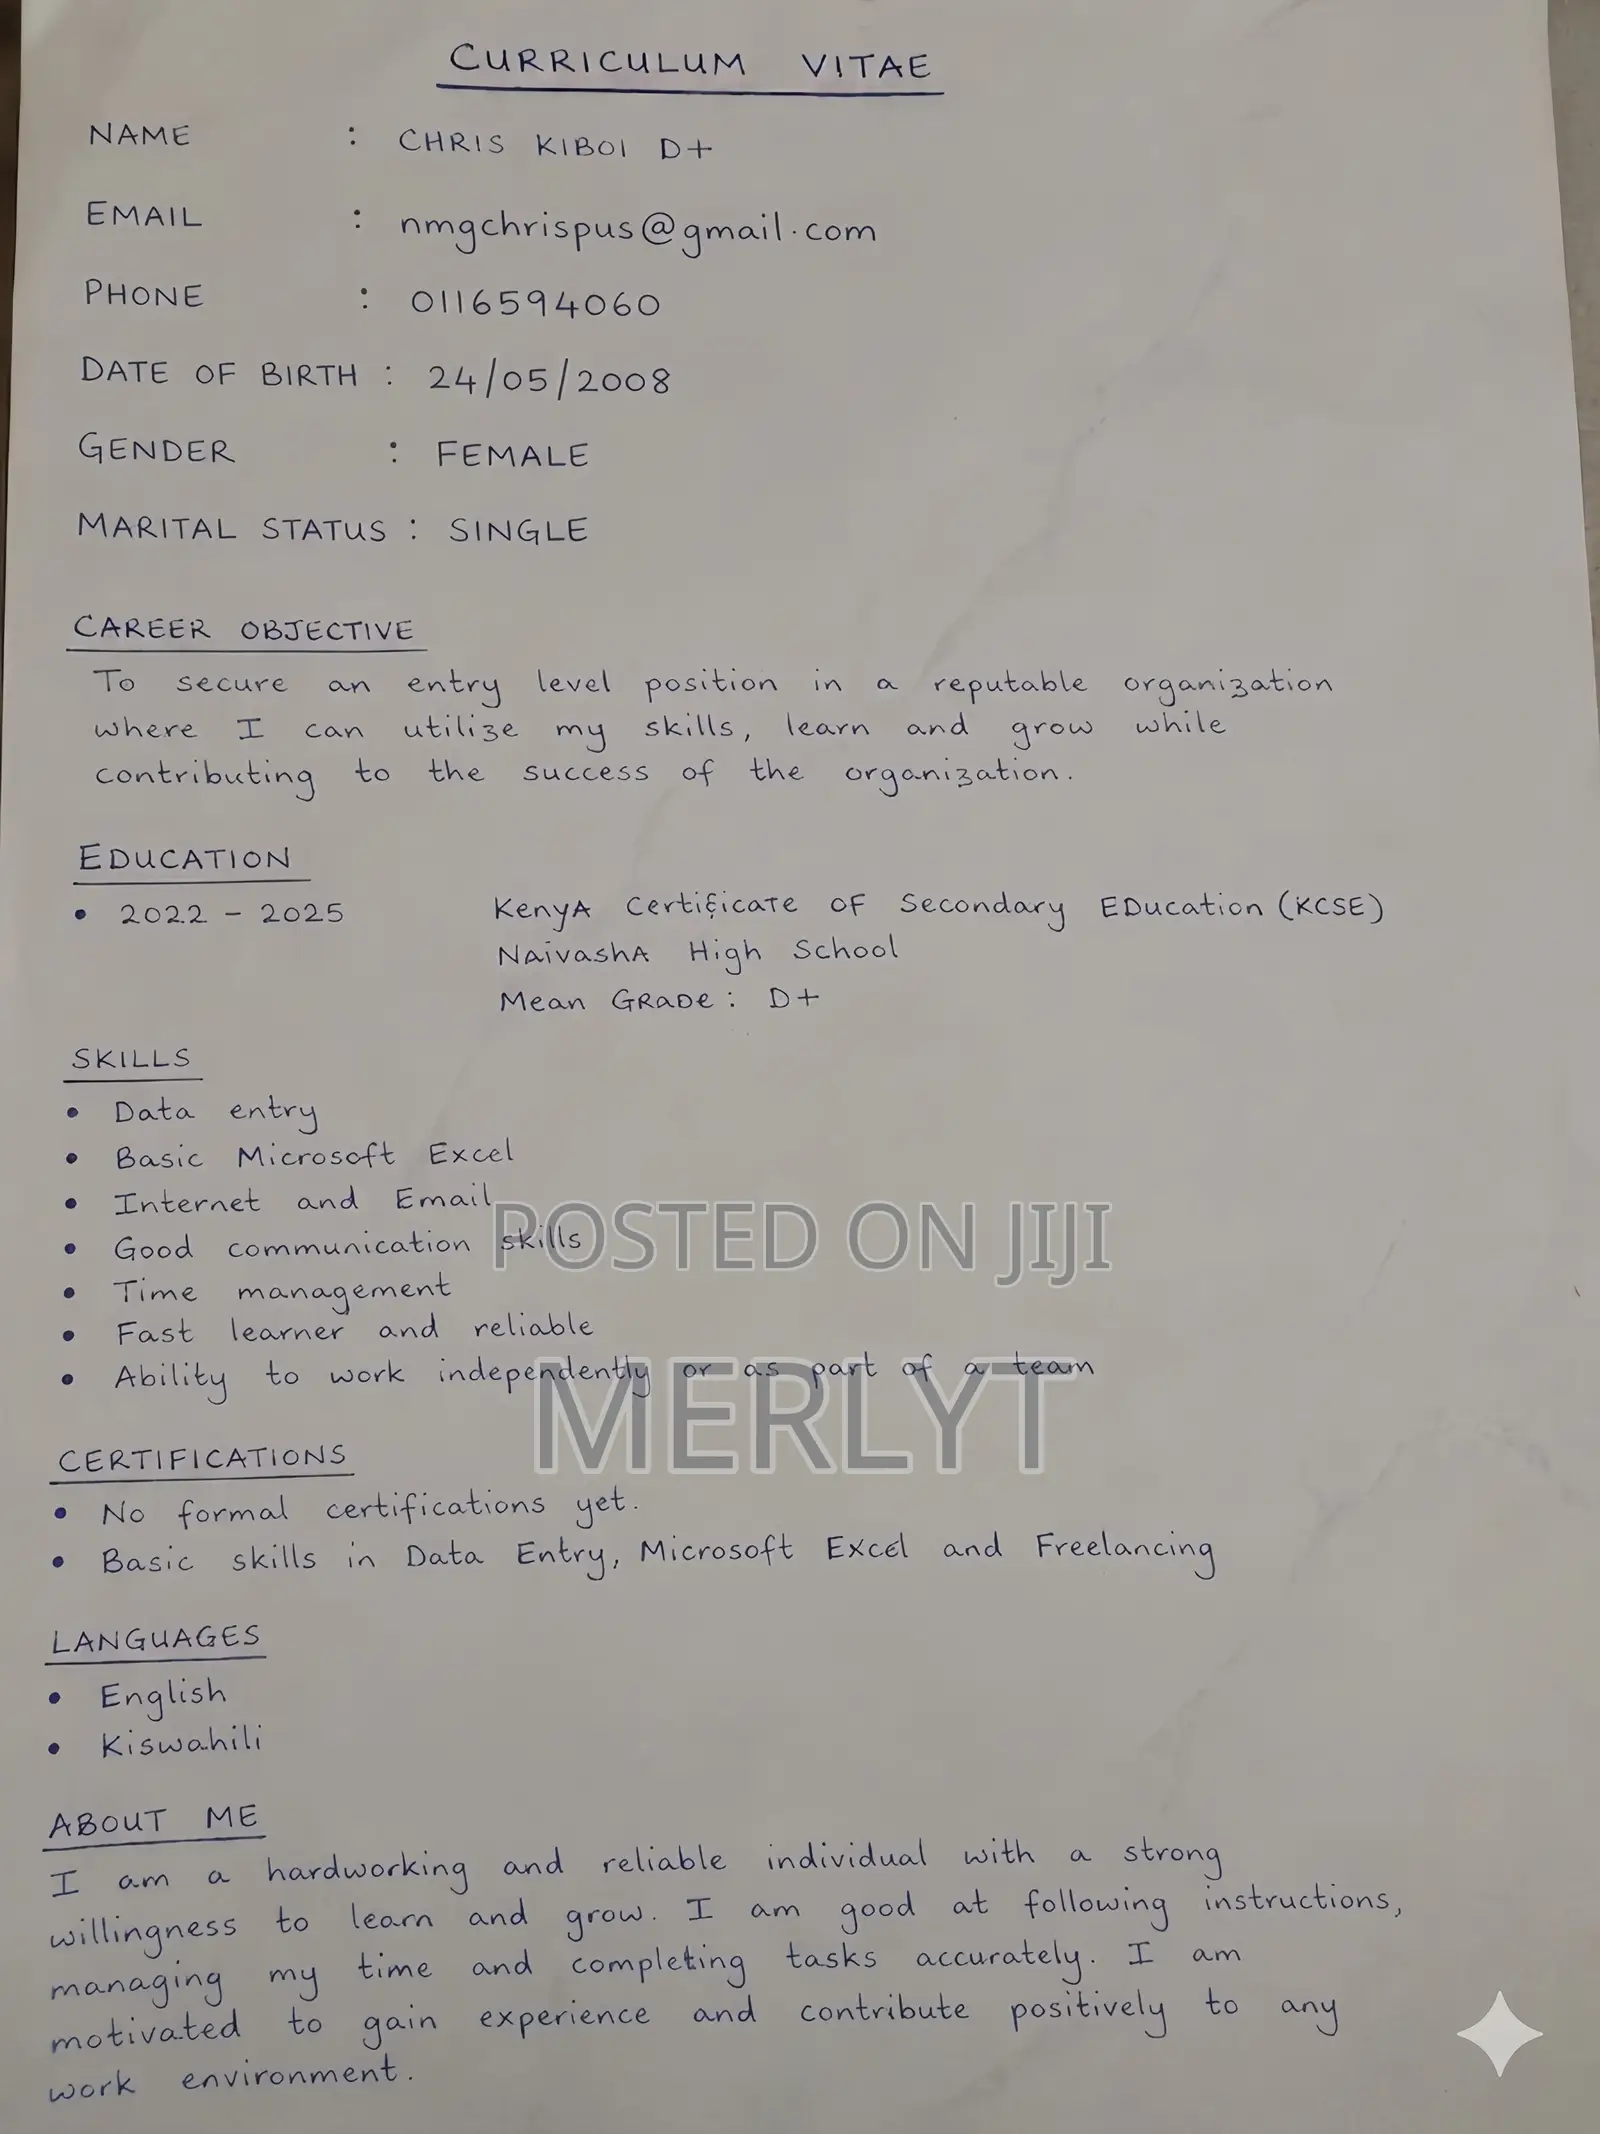 CURRICULUM VITAE
NAME : CHRIS KIBOI D+
EMAIL : nmgchrispus@gmail.com
PHONE : 0116594060
DATE OF BIRTH : 24/05/2008
GENDER : FEMALE
MARITAL STATUS : SINGLE
CAREER OBJECTIVE
To secure an entry level position in a reputable organization
where I can utilize my skills, learn and grow while
contributing to the success of the organization.
EDUCATION
• 2022 - 2025 KenyA CertificaTe OF Secondary EDucation (KCSE)
NaivashA High School
Mean GRaDe : D+
SKILLS
• Data entry
• Basic Microsoft Excel
• Internet and Email
• Good communication skills
POSTED ON JIJI
• Time management
• Fast learner and reliable
• Ability to work independently or as part of a team
MERLYT
CERTIFICATIONS
• No formal certifications yet.
• Basic skills in Data Entry, Microsoft Excel and Freelancing
LANGUAGES
• English
• Kiswahili
ABOUT ME
I am a hardworking and reliable individual with a strong
willingness to learn and grow. I am good at following instructions,
managing my time and completing tasks accurately. I am
motivated to gain experience and contribute positively to any
work environment.